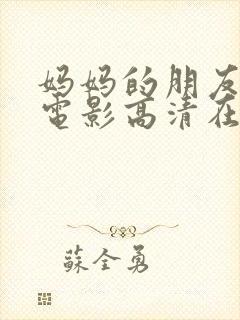 妈妈的朋友
電影高清在
蘇全勇